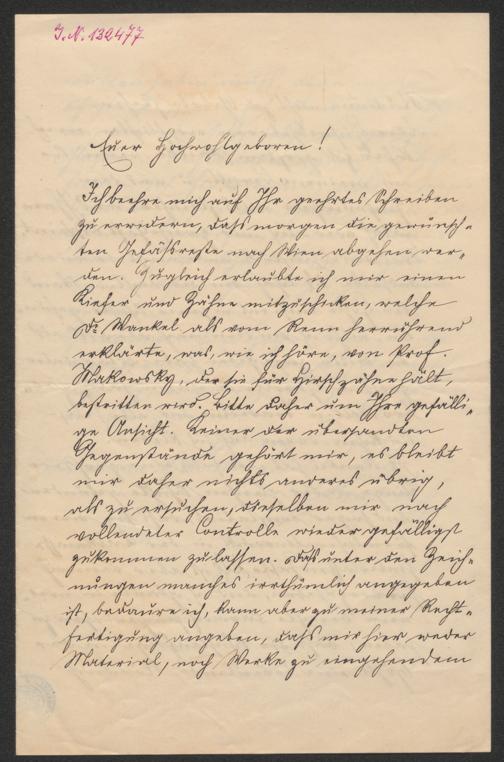 J. N. 132477
Euer Hochwohlgeboren!
Ich beehre mich auf Ihr geehrtes Schreiben
zu erwidern, dass morgen die gewünsch-
ten Gefäßreste nach Wien abgehen wer-
den. Zugleich erlaubte ich mir einen
Kiefer und Zähne mitzuschicken, welche
Dr. Wankel als vom Renn herrührend
erklärte, was, wie ich höre, von Prof.
Makowsky, der sie für Hirschzähne hält,
bestritten wird. Bitte daher um Ihre gefälli-
ge Ansicht. Keiner der übersandten
Gegenstände gehört mir, es bleibt
mir daher nichts anderes übrig,
als zu ersuchen, dieselben mir nach
vollendeter Controlle wieder gefälligst
zukommen zu lassen. Daß unter den Zeich-
nungen manches irrthümlich angegeben
ist, bedaure ich, kann aber zu meiner Recht-
fertigung angeben, daß mir hier weder
Material, noch Werke zu eingehendem